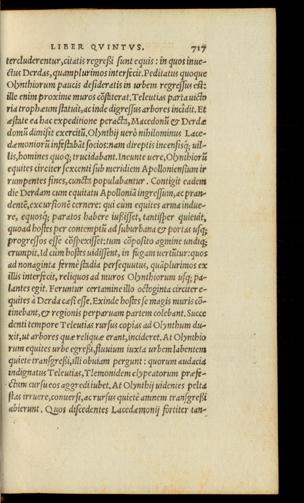 LIBER QVINTVS. 717
tercluderentur, citatis regreßi sunt equis: in quos inue-
ctus Derdas, quamplurimos interfecit. Peditatus quoque
Olynthiorum paucis desideratis in urbem regressus est:
ille enim proxime muros cõstiterat. Teleutias parta uicto
ria trophæum statuit, ac inde digressus arbores incidit. Et
æstate ea hac expeditione peracta, Macedonũ & Derdæ
domũ dimisit exercitũ, Olynthij uerò nihilominus Lace-
dæmoniorũ infestabãt socios: nam direptis incensisq; uil-
lis, homines quoq; trucidabant. Ineunte uere, Olynthiorũ
equites circiter sexcenti sub meridiem Apolloniensium ir
rumpentes fines, cuncta populabantur. Contigit eadem
die Derdam cum equitatu Apolloniã ingressum, ac pran-
dentẽ, excursionẽ cernere: qui cùm equites arma indue-
re, equosq; paratos habere iußisset, tantisper quieuit,
quoad hostes per contemptũ ad suburbana & portas usq;
progressos esse cõspexisset: tum cõposito agmine undiq;
erumpit. Id cum hostes uidissent, in fugam uertũtur: quos
ad nonaginta fermè stadia persequutus, quàplurimos ex
illis interfecit, reliquos ad muros Olynthiorum usq; pa-
lantes egit. Feruntur certamine illo octoginta circiter e-
quites à Derda cæsi esse. Exinde hostes se magis muris cõ-
tinebant, & regionis perparuam partem colebant. Succe
denti tempore Teleutias rursus copias ad Olynthum du-
xit, ut arbores quæ reliquæ erant, incideret. At Olynthio
rum equites urbe egreßi, fluuium iuxta urbem labentem
quiete transgreßi, illi obuiam pergunt: quorum audacia
indignatus Teleutias, Tlemonidem clypeatorum præfe-
ctum cursu eos aggredi iubet. At Olynthij uidentes pelta
stas irruere, conuersi, ac rursus quietè amnem transgreßi
abierunt. Quos discedentes Lacedæmonij fortiter tan-